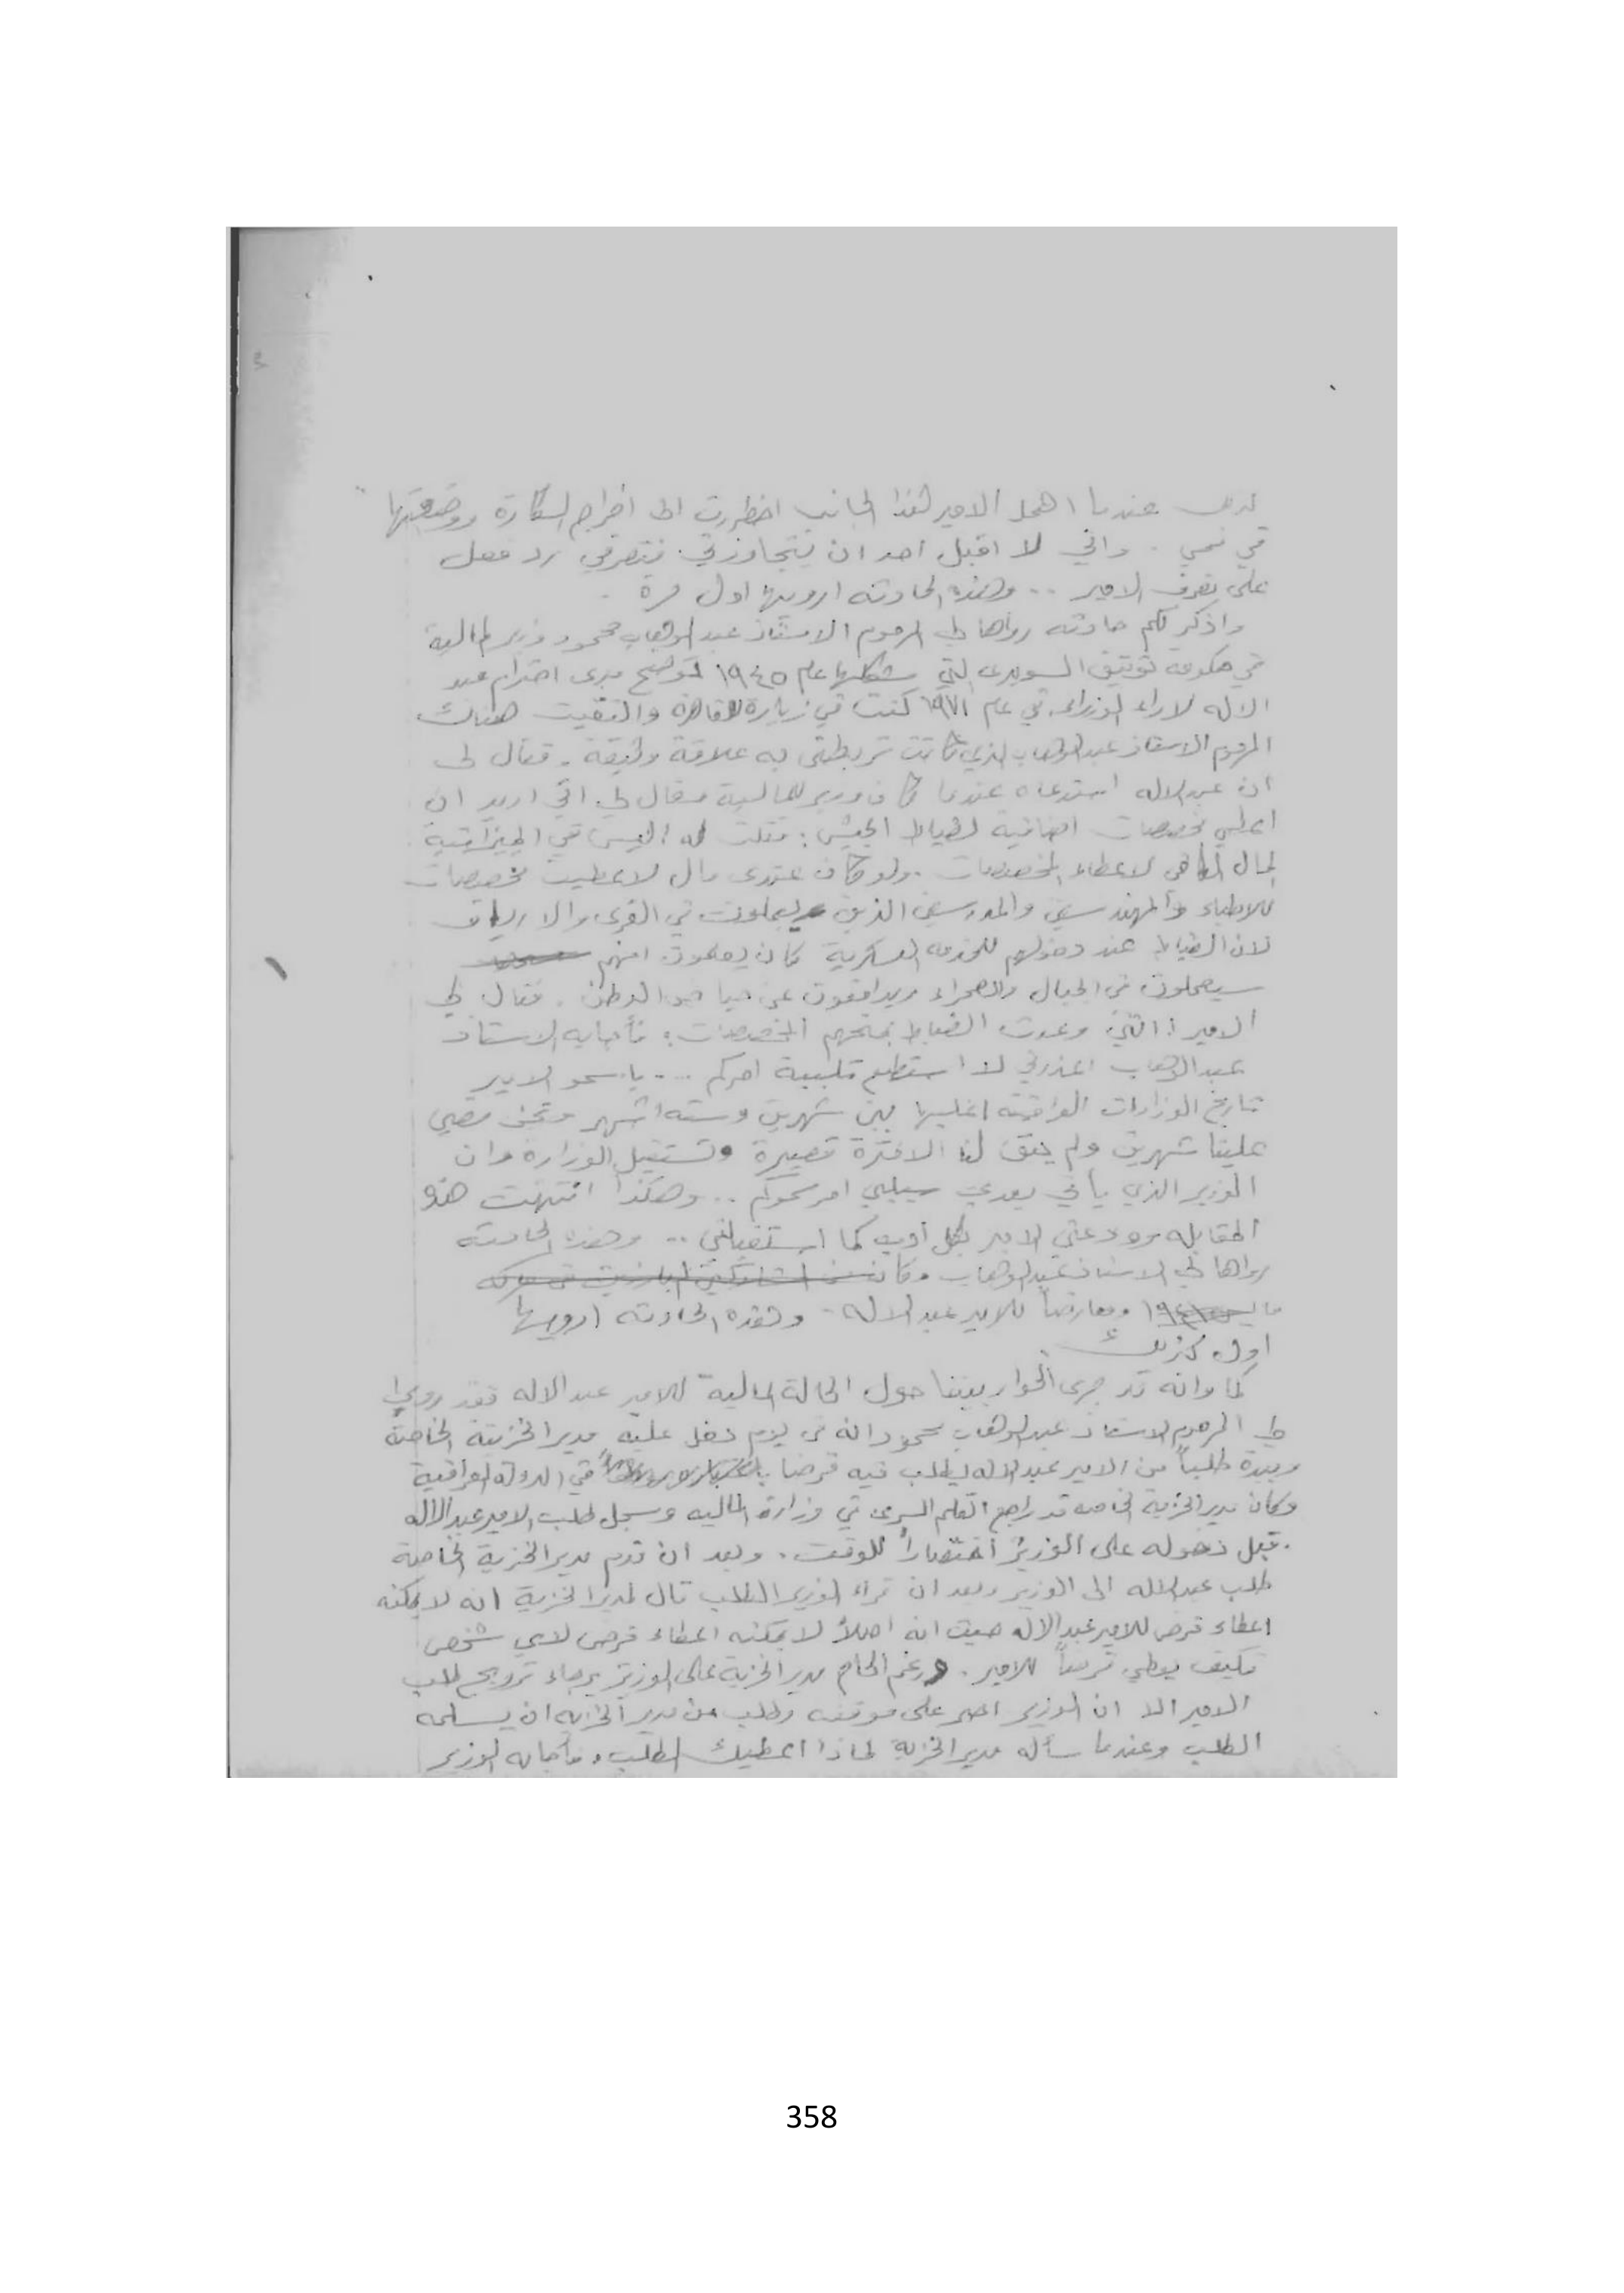 عندما اهمل الامير هذا الجانب اضطررت الى اخراج السكارة ووضعتها
في فمي . واني لا اقبل احد ان يتجاوزني . فتصرفي رد فعل
على تصرف الامير .. وهذه الحادثه ارويها اول مرة .
واذكر لكم حادثه رواها لي المرحوم الاستاذ عبد الوهاب محمود وزير المالية
في حكومة توفيق السويدي التي شكلها عام ١٩٤٥ توضح مدى احترام عبد
الاله لاراء الوزراء . في عام ١٩٧١ كنت في زيارة للقاهرة والتقيت هناك
المرحوم الاستاذ عبد الوهاب الذي كانت تربطني به علاقة وثيقة . فقال لي
ان عبد الاله استدعاه عندما كان وزير للمالية وقال لي اني اريد ان
اعطي مخصصات اضافية لضباط الجيش : فقلت له اليس في الميزانية
المال الكافي لاعطاء المخصصات . ولو كان عندي مال لاعطيت مخصصات
للاطباء والمهندسين والمدرسين الذين يعملون في القرى والارياف
لان الضباط عند دخولهم للخدمه العسكرية كان يعلمون انهم
سيعملون في الجبال والصحراء ويدافعون عن حياض الوطن . فقال لي
الامير : انني وعدت الضباط بمنحهم المخصصات : فأجابه الاستاذ
عبد الوهاب اعذرني لا استطيع تلبية امركم ... يا سمو الامير
تاريخ الوزارات العراقيه اغلبها بين شهرين وسته اشهر ونحن مضى
علينا شهرين ولم يبق لنا الا فترة قصيرة وتستقيل الوزارة وان
الوزير الذي يأتي بعدي سيلبي امر سموكم .. وهكذا انتهت هذه
المقابله وودعني الامير بكل ادب كما استقبلني .. وهذه الحادثه
رواها لي الاستاذ عبد الوهاب وكان من المشاركين البارزين في حركه
مايس ١٩٤١ ومعارضاً للامير عبد الاله - وهذه الحادثه ارويها
اول
كما وانه قد جرى الحوار بيننا حول الحالة المالية للامير عبد الاله فقد روى
لي المرحوم الاستاذ عبد الوهاب محمود انه في يوم دخل عليه مدير الخزينة الخاصة
وبيده طلباً من الامير عبد الاله يطلب فيه قرضا في الدولة العراقية
وكان مدير الخزينة الخاصه قد راجع القلم السري في وزارة الماليه وسجل طلب الامير عبد الاله
قبل دخوله على الوزير اختصاراً للوقت . وبعد ان قدم مدير الخزينة الخاصة
طلب عبد الاله الى الوزير وبعد ان قراء الوزير الطلب قال لمدير الخزينة انه لا يمكنه
اعطاء قرض للامير عبد الاله حيث انه اصلاً لا يمكنه اعطاء قرض لاي شخص
فكيف يعطي قرضاً للامير . ورغم الحاح مدير الخزينة على الوزير برجاء ترويج طلب
الامير الا ان الوزير اصر على موقفه وطلب من مدير الخزينه ان يسلمه
الطلب وعندما سأله مدير الخزينة لماذا اعطيك الطلب . فأجابه الوزير
358